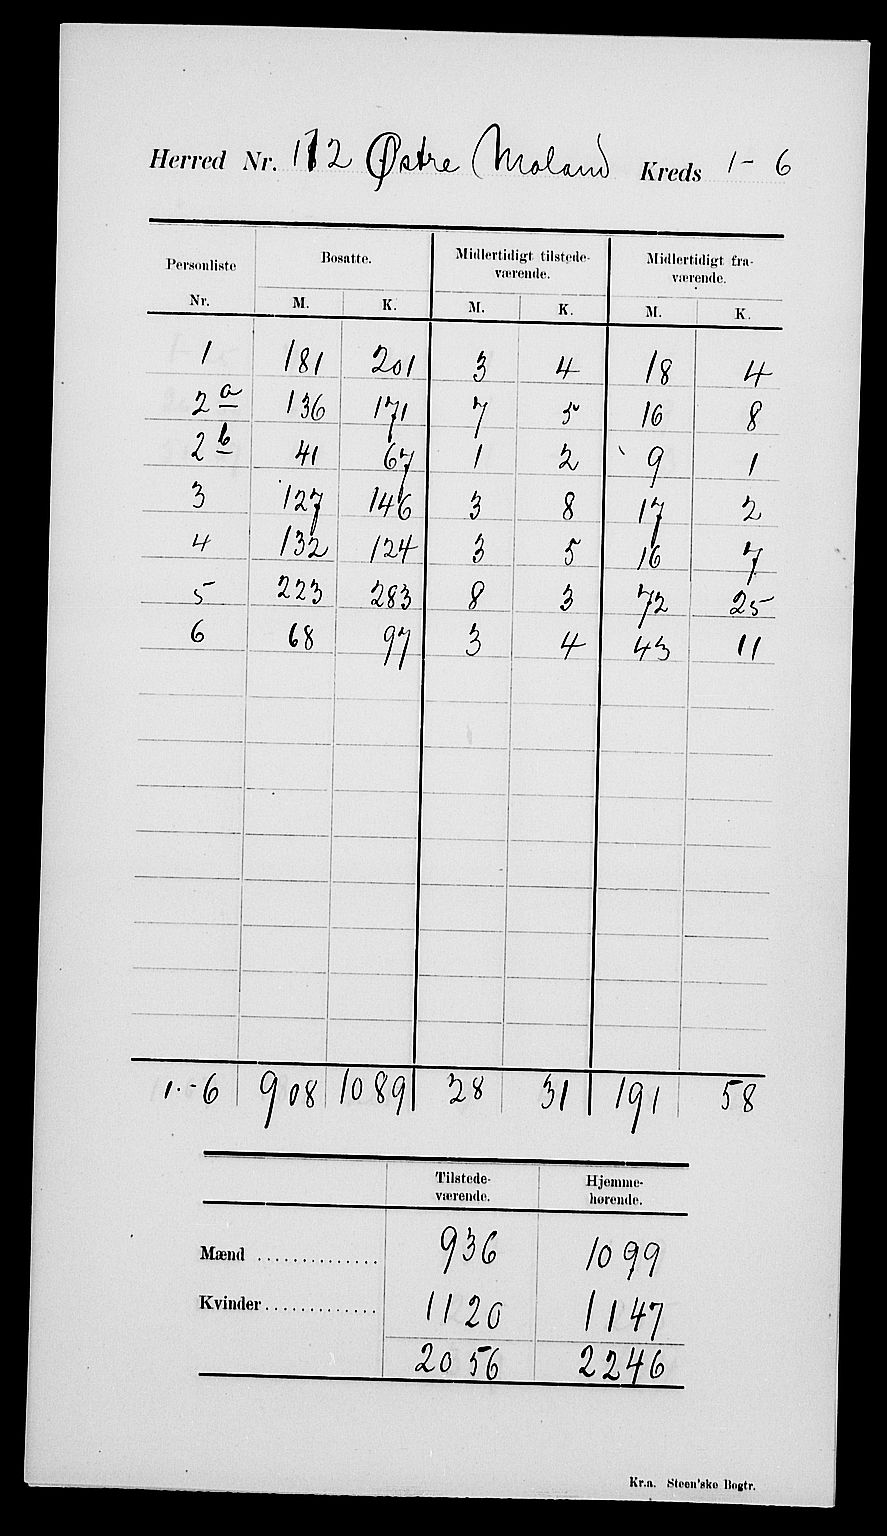 Herred Nr. 112 Østre Moland Kreds 1-6
Personliste Nr. Bosatte. Midlertidigt tilstedeværende. Midlertidigt fraværende.
M. K. M. K. M. K.
1 181 201 3 4 18 4
2a 136 171 7 5 16 8
2b 41 67 1 2 9 1
3 127 146 3 8 17 2
4 132 124 3 5 16 7
5 223 283 8 3 72 25
6 68 97 3 4 43 11
1.-6 908 1089 28 31 191 58
Tilstede-værende. Hjemme-hørende.
Mænd .............. 936 1099
Kvinder............. 1120 1147
2056 2246
Kr.a. Steen'ske Bogtr.